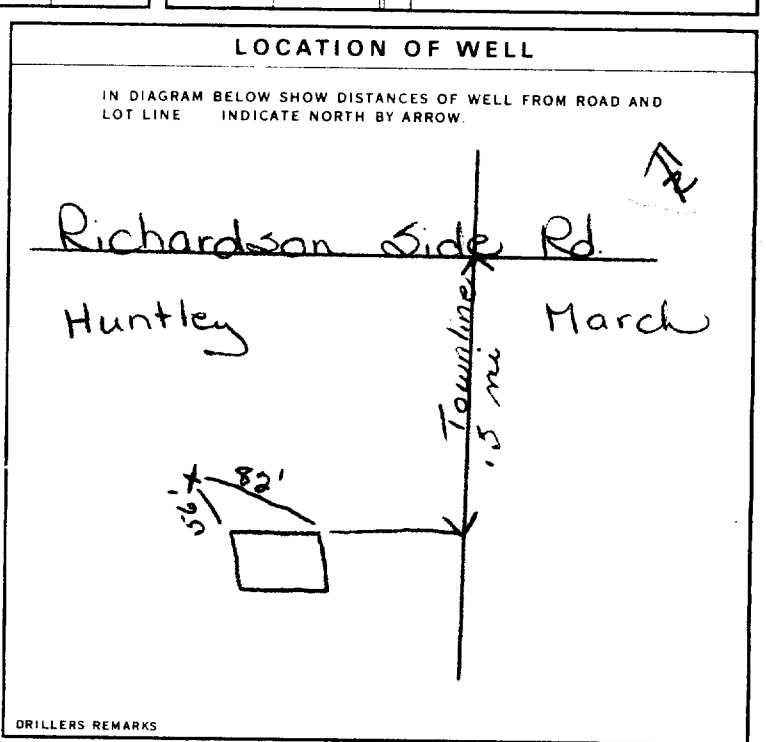 LOCATION OF WELL
IN DIAGRAM BELOW SHOW DISTANCES OF WELL FROM ROAD AND
LOT LINE INDICATE NORTH BY ARROW.
Richardson Side Rd.
Huntley
March
Townline
.5 mi
82'
56'
DRILLERS REMARKS